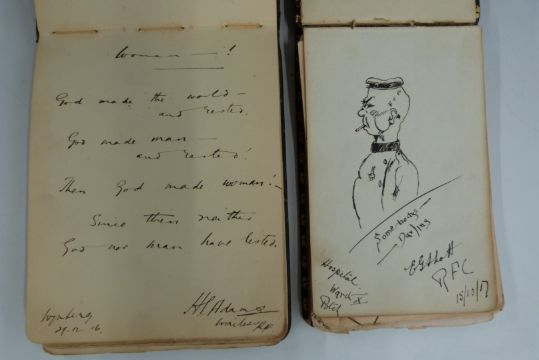 Woman — !
God made the world —
and rested.
God made man —
and rested!
Then God made woman! —
Since then neither
God nor man have rested.
29.12.16.
H Adams
Somebodys
Darling
Hospital
Ward X
RFC
15/10/17